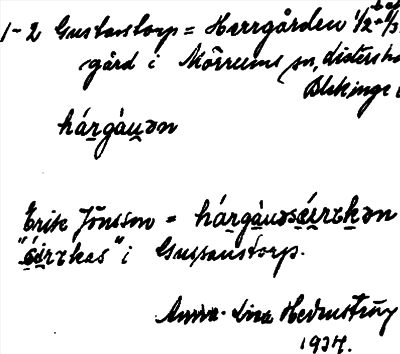 1-2 Gustavstorp = Herrgården
gård i Mörrums sn,
Blekinge
hárgàu̯ən
Erik Jönsson = hárgàu̯əséírɛkən
"éírɛkas" i Gustavstorp.
Anna-Lisa Hedenström
1934.